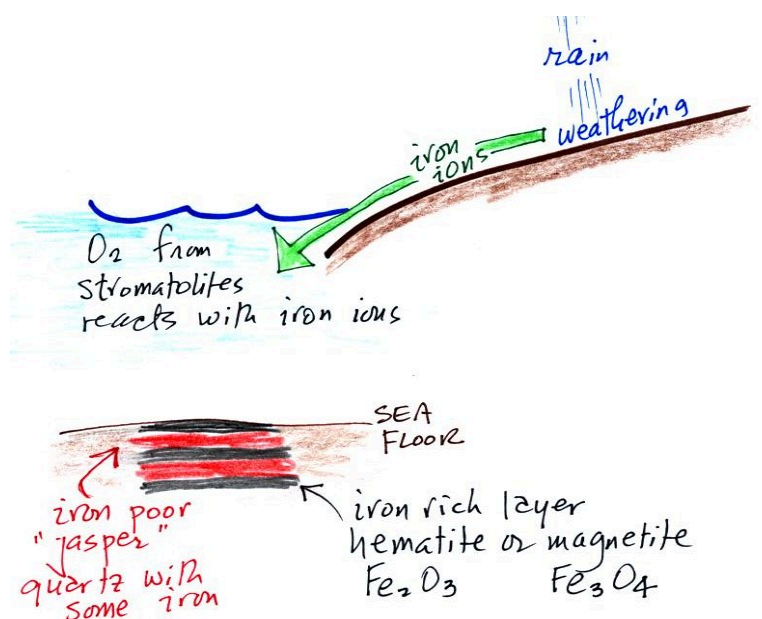 rain
weathering
iron
ions
O₂ from
stromatolites
reacts with iron ions
SEA
FLOOR
iron poor
"jasper"
quartz with
some iron
iron rich layer
hematite or magnetite
Fe₂O₃ Fe₃O₄